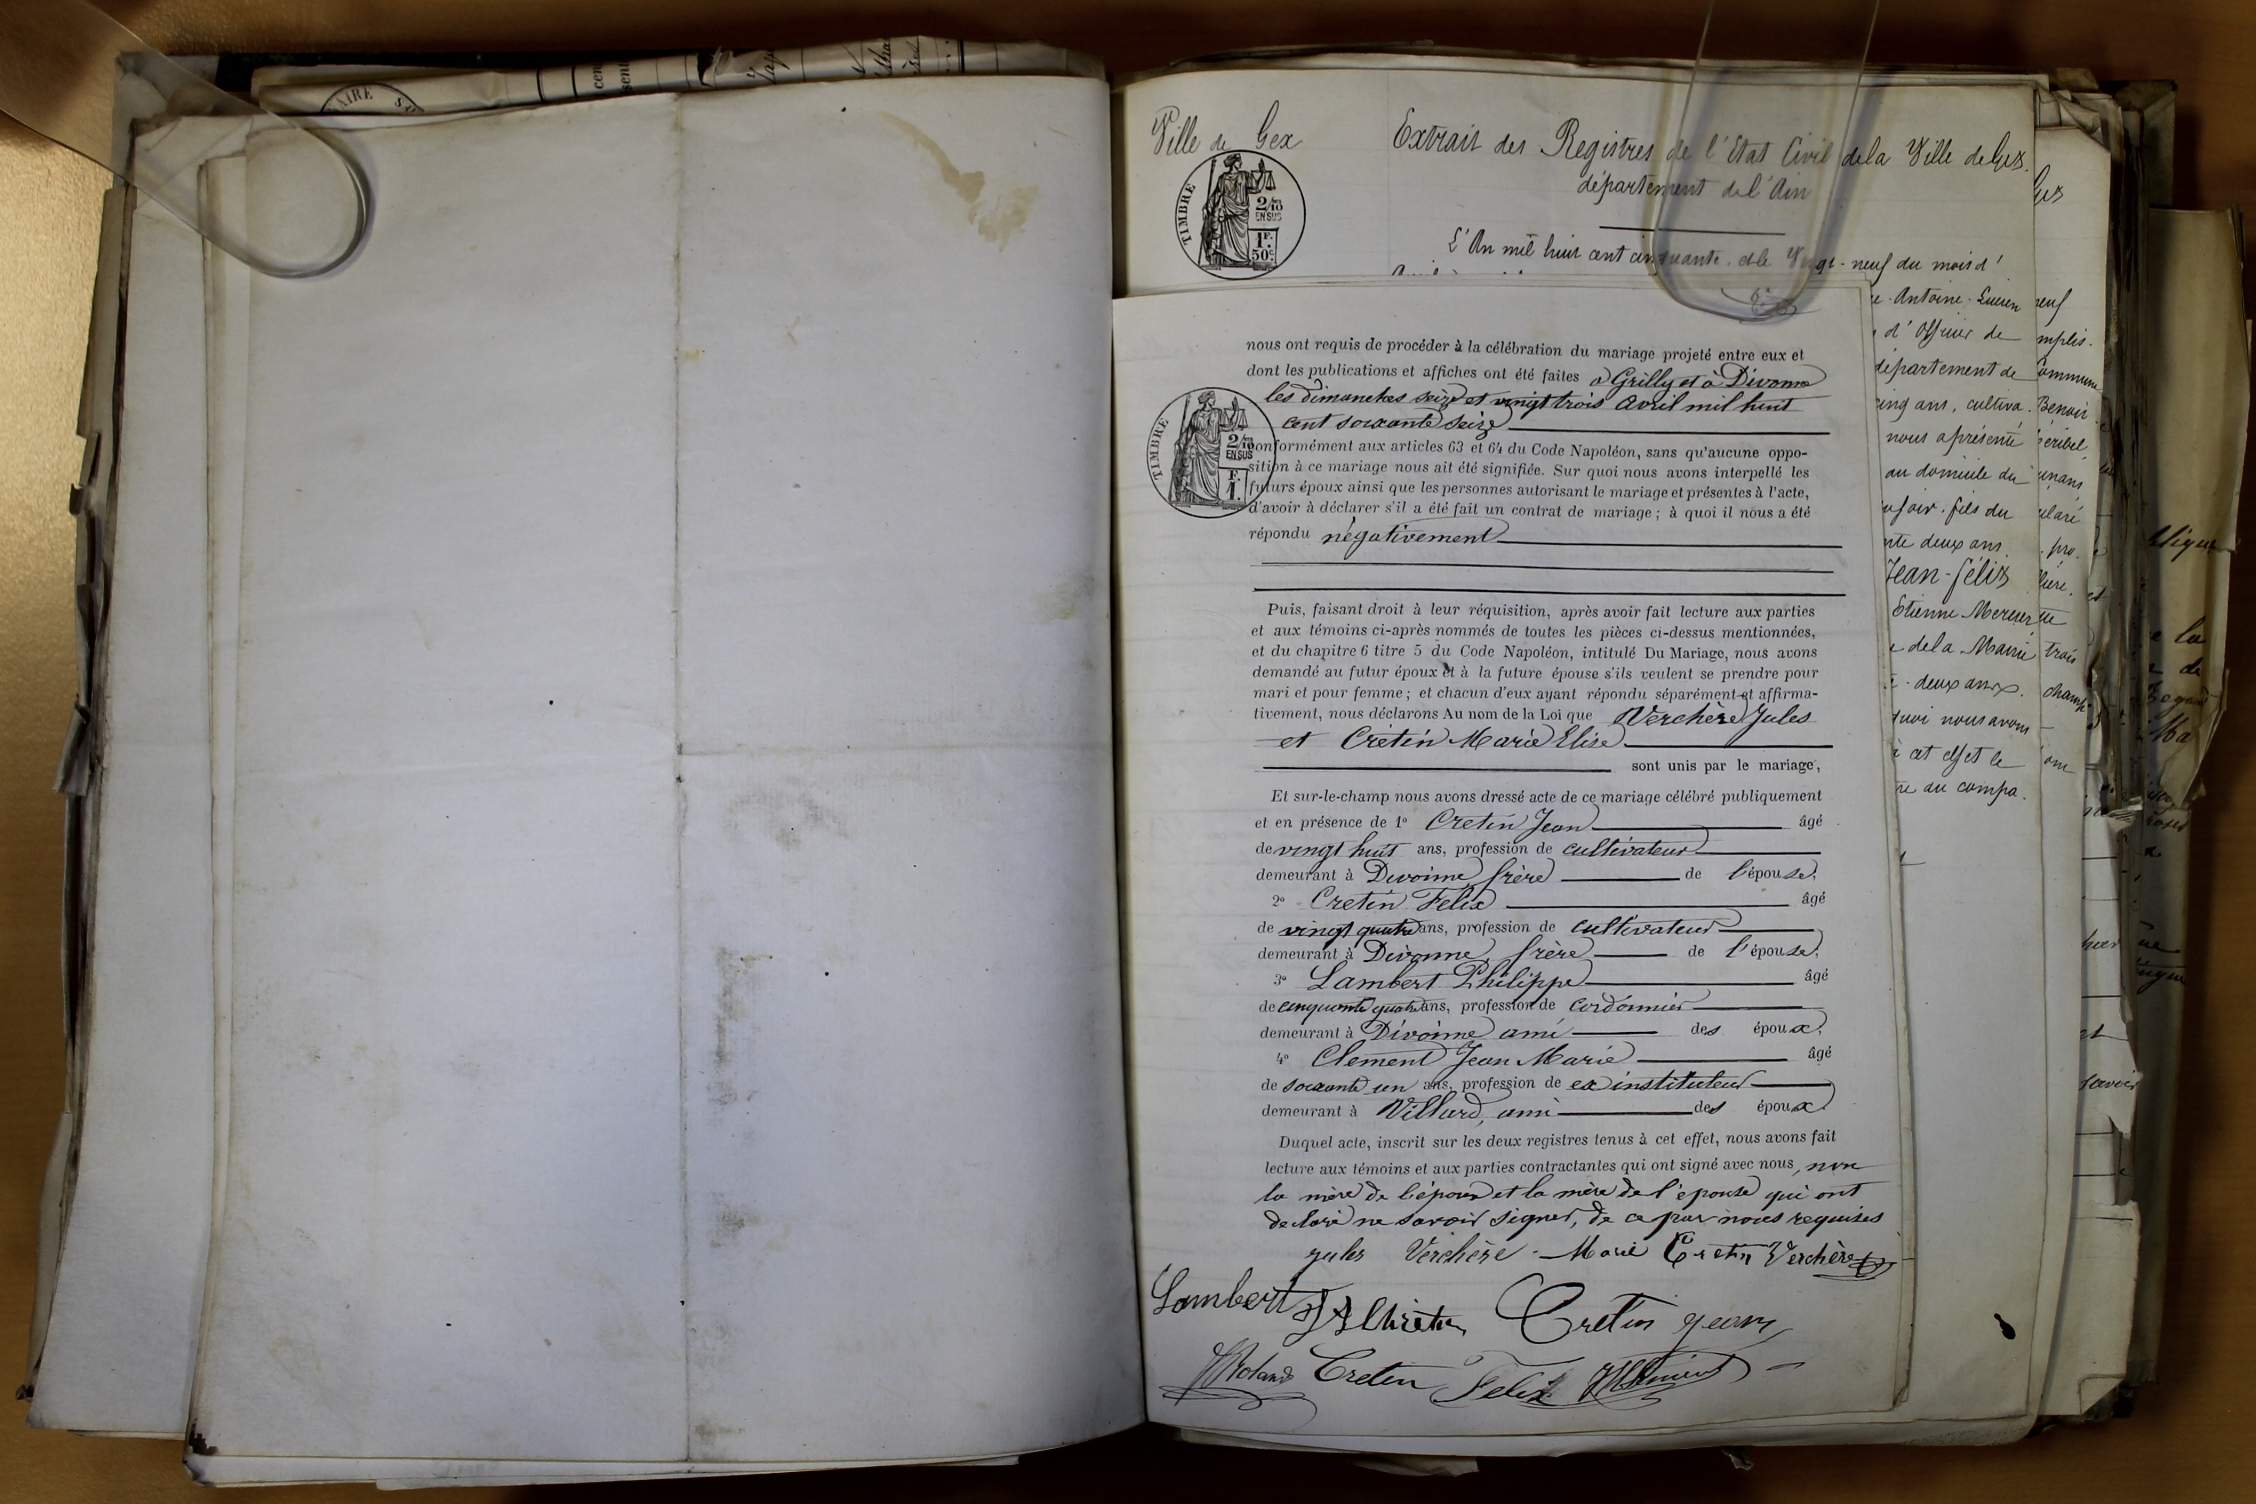 AIRE
cen
sent
Ville de Gex
TIMBRE
2/10
EN SUS
1F.
50c.
Extrait des Registres de l'Etat Civil de la Ville de Gex.
département de l'Ain
L'An mil huit cent cinquante et le Vingt-neuf du mois d'
nous ont requis de procéder à la célébration du mariage projeté entre eux et
dont les publications et affiches ont été faites à Grilly et à Divonne
les dimanches seize et vingt trois avril mil huit
cent soixante seize
TIMBRE
2/10
EN SUS
F.
1.
conformément aux articles 63 et 64 du Code Napoléon, sans qu'aucune oppo-
sition à ce mariage nous ait été signifiée. Sur quoi nous avons interpellé les
futurs époux ainsi que les personnes autorisant le mariage et présentes à l'acte,
d'avoir à déclarer s'il a été fait un contrat de mariage ; à quoi il nous a été
répondu négativement
Puis, faisant droit à leur réquisition, après avoir fait lecture aux parties
et aux témoins ci-après nommés de toutes les pièces ci-dessus mentionnées,
et du chapitre 6 titre 5 du Code Napoléon, intitulé Du Mariage, nous avons
demandé au futur époux et à la future épouse s'ils veulent se prendre pour
mari et pour femme ; et chacun d'eux ayant répondu séparément et affirma-
tivement, nous déclarons Au nom de la Loi que Verchère Jules
et Cretin Marie Elise
sont unis par le mariage,
Et sur-le-champ nous avons dressé acte de ce mariage célébré publiquement
et en présence de 1° Cretin Jean âgé
de vingt huit ans, profession de cultivateur
demeurant à Divonne frère de l'épouse,
2° Cretin Felix âgé
de vingt quatre ans, profession de cultivateur
demeurant à Divonne, frère de l'épouse,
3° Lambert Philippe âgé
de cinquante quatre ans, profession de cordonnier
demeurant à Divonne ami des époux,
4° Clement Jean Marie âgé
de soixante un ans, profession de ex instituteur
demeurant à Villard, ami des époux.
Duquel acte, inscrit sur les deux registres tenus à cet effet, nous avons fait
lecture aux témoins et aux parties contractantes qui ont signé avec nous, non
la mère de l'époux et la mère de l'épouse qui ont
declaré ne savoir signer, de ce par nous requises
jules Verchère - Marie Cretin Verchère
Lambert Cretin jean
Cretin Felix
Antoine-Lucien
d'Officier de
département de
cinq ans, cultiva
nous a présenté
au domicile du
fils du
deux ans.
Jean-félix
Etienne Mercier
de la Mairie
deux ans.
quoi nous avons
à cet effet le
du compa.
Gex
neuf
Commune
Benoit
trois
champ
la
de
et